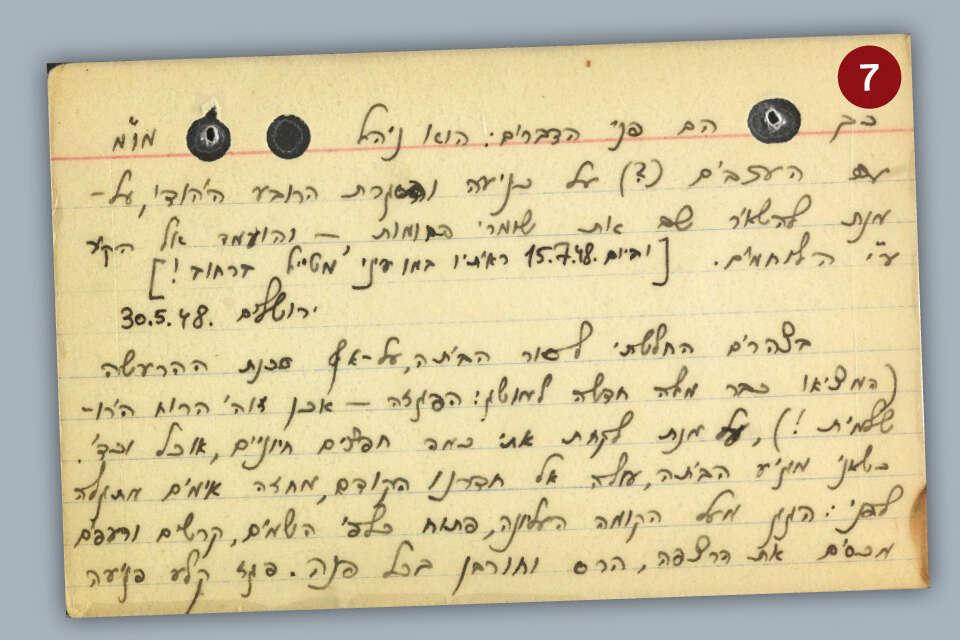 7
כך הם פני הדברים: הוא ניהל מו"מ
עם הערבים (?) על כניעה והפקרת הרובע היהודי, על-
מנת להשאיר שם את שומרי החומות – והועמד אל הקיר
ע"י הלוחמים. [וביום 15.7.48 ראיתיו במו עיני מטייל ברחוב!]
ירושלים 30.5.48.
בצהרים החלטתי לסור הביתה, על-אף סכנת ההרעשה
(המציאו כבר מלה חדשה למושג: הפגזה – אכן זוהי הרוח הירו-
שלמית!), על מנת לקחת אתי כמה חפצים חיוניים, אוכל וכד'.
כשאני מגיע הביתה, עולה אל חדרנו הקודם, מחזה אימים מתגלה
לפני: הגג מעל הקומה העליונה, פתוח כלפי השמים, קרשים ורעפים
מכסים את הרצפה, הרס וחורבן בכל פנה. פגז קלע פגיעה